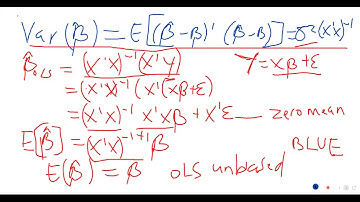 Var(β̂) = E[(β̂-β)' (β̂-β)] = σ²(x'x)⁻¹
β̂OLS = (X'X)⁻¹(X'Y) Y = xβ+ε
= (X'X)⁻¹ (X'(xβ+ε)
= (X'X)⁻¹ X'xβ + X'ε — zero mean
E[β̂] = (X'X)⁻¹⁺¹ β
E(β̂) = β OLS unbiased BLUE